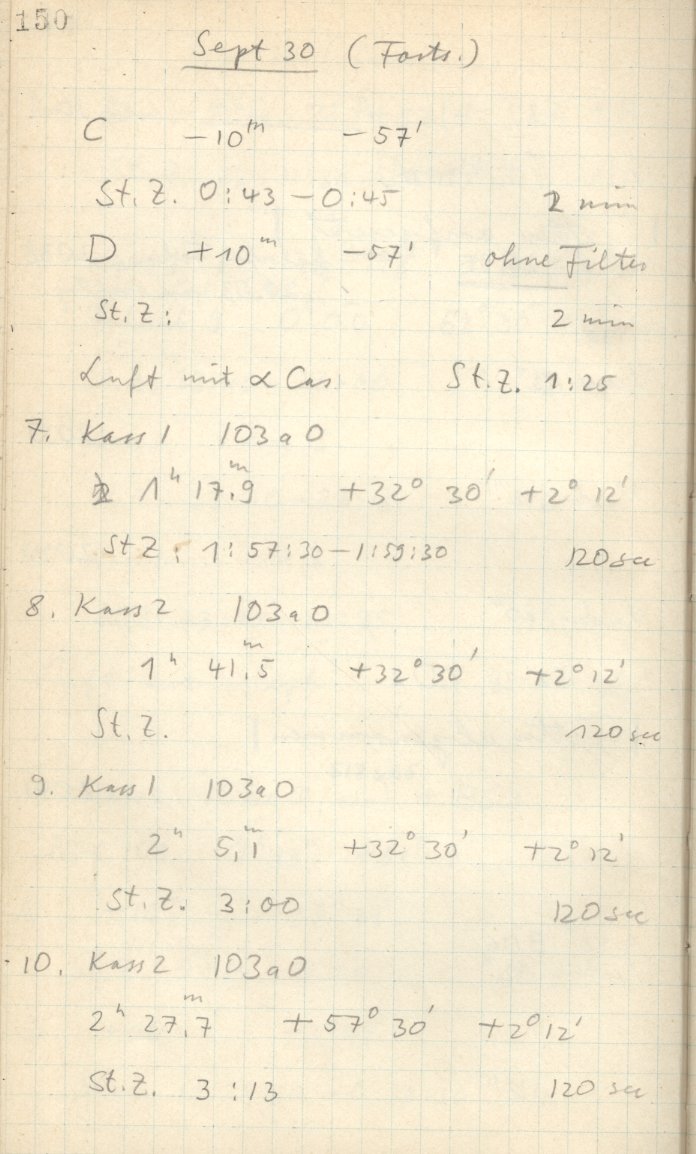 150
Sept 30 (Forts.)
C -10ᵐ -57'
St. Z. 0:43 - 0:45 2 min
D +10ᵐ -57' ohne Filter
St. Z: 2 min
Luft mit α Cas St. Z. 1:25
7. Kass 1 103a0
1ʰ 17ᵐ.9 +32° 30' +2° 12'
St Z: 1:57:30 - 1:59:30 120 sec
8. Kass 2 103a0
1ʰ 41ᵐ.5 +32° 30' +2° 12'
St. Z. 120 sec
9. Kass 1 103a0
2ʰ 5ᵐ,1 +32° 30' +2° 12'
St. Z. 3:00 120 sec
10. Kass 2 103a0
2ʰ 27ᵐ.7 +57° 30' +2° 12'
St. Z. 3:13 120 sec